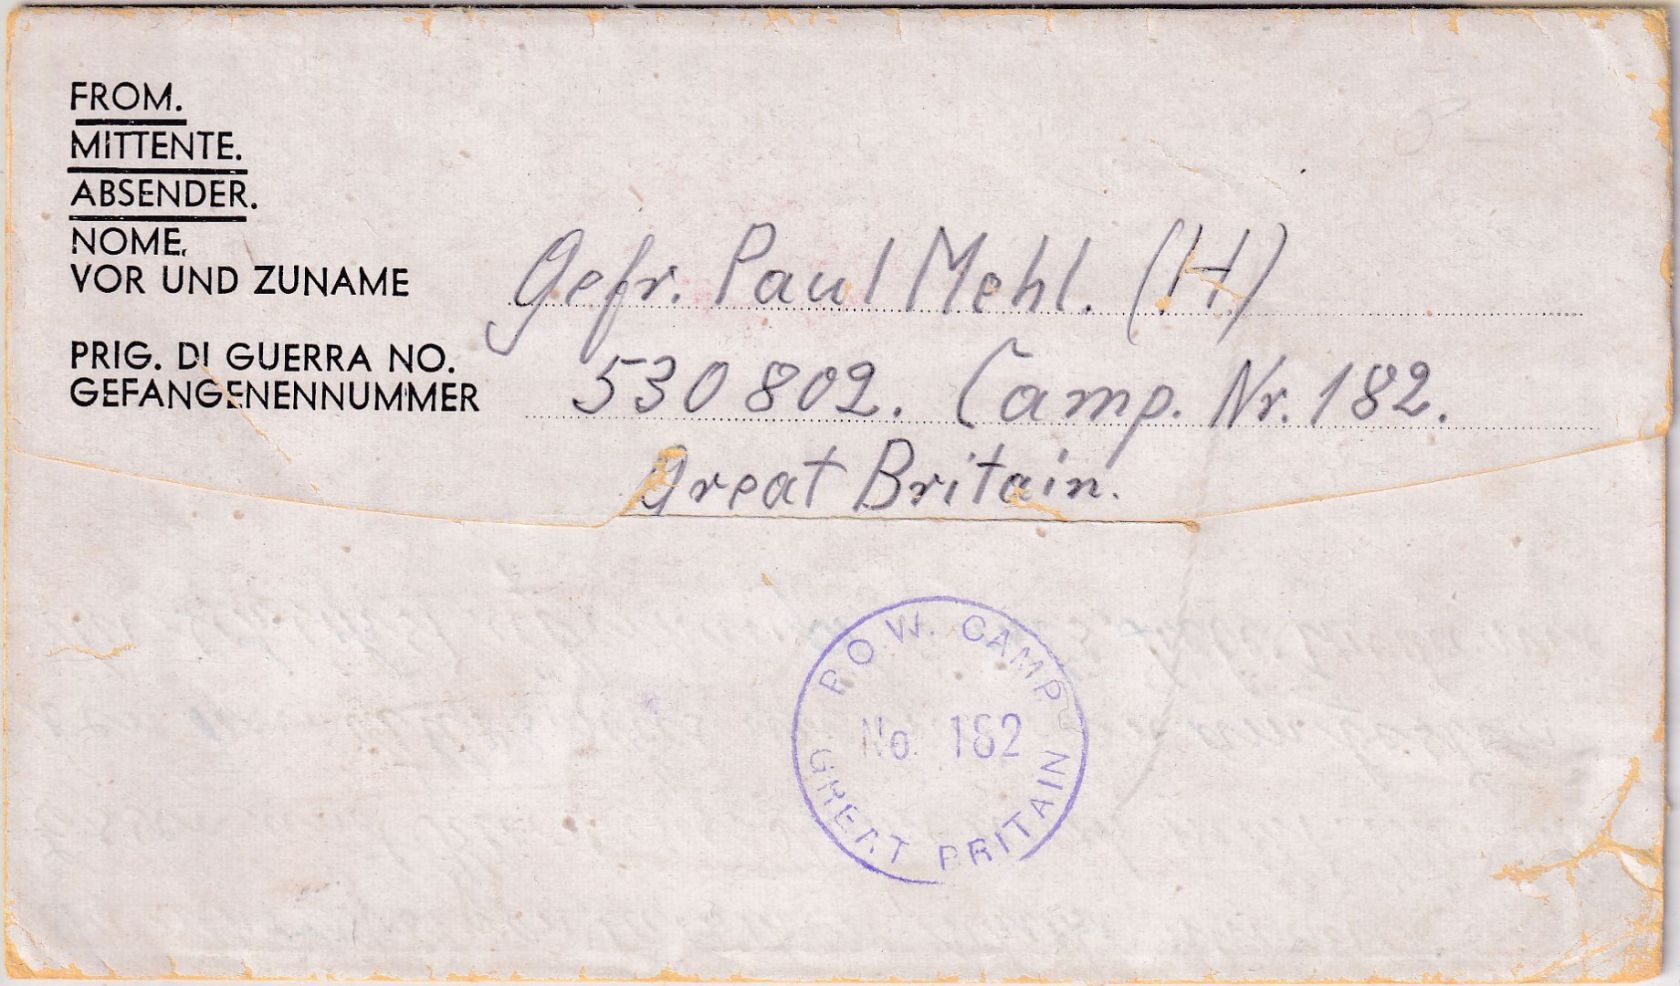 FROM.
MITTENTE.
ABSENDER.
NOME.
VOR UND ZUNAME
Gefr. Paul Mehl. (H.)
PRIG. DI GUERRA NO.
GEFANGENENNUMMER
530802. Camp. Nr. 182.
Great Britain.
P.O.W. CAMP
No. 182
GREAT BRITAIN